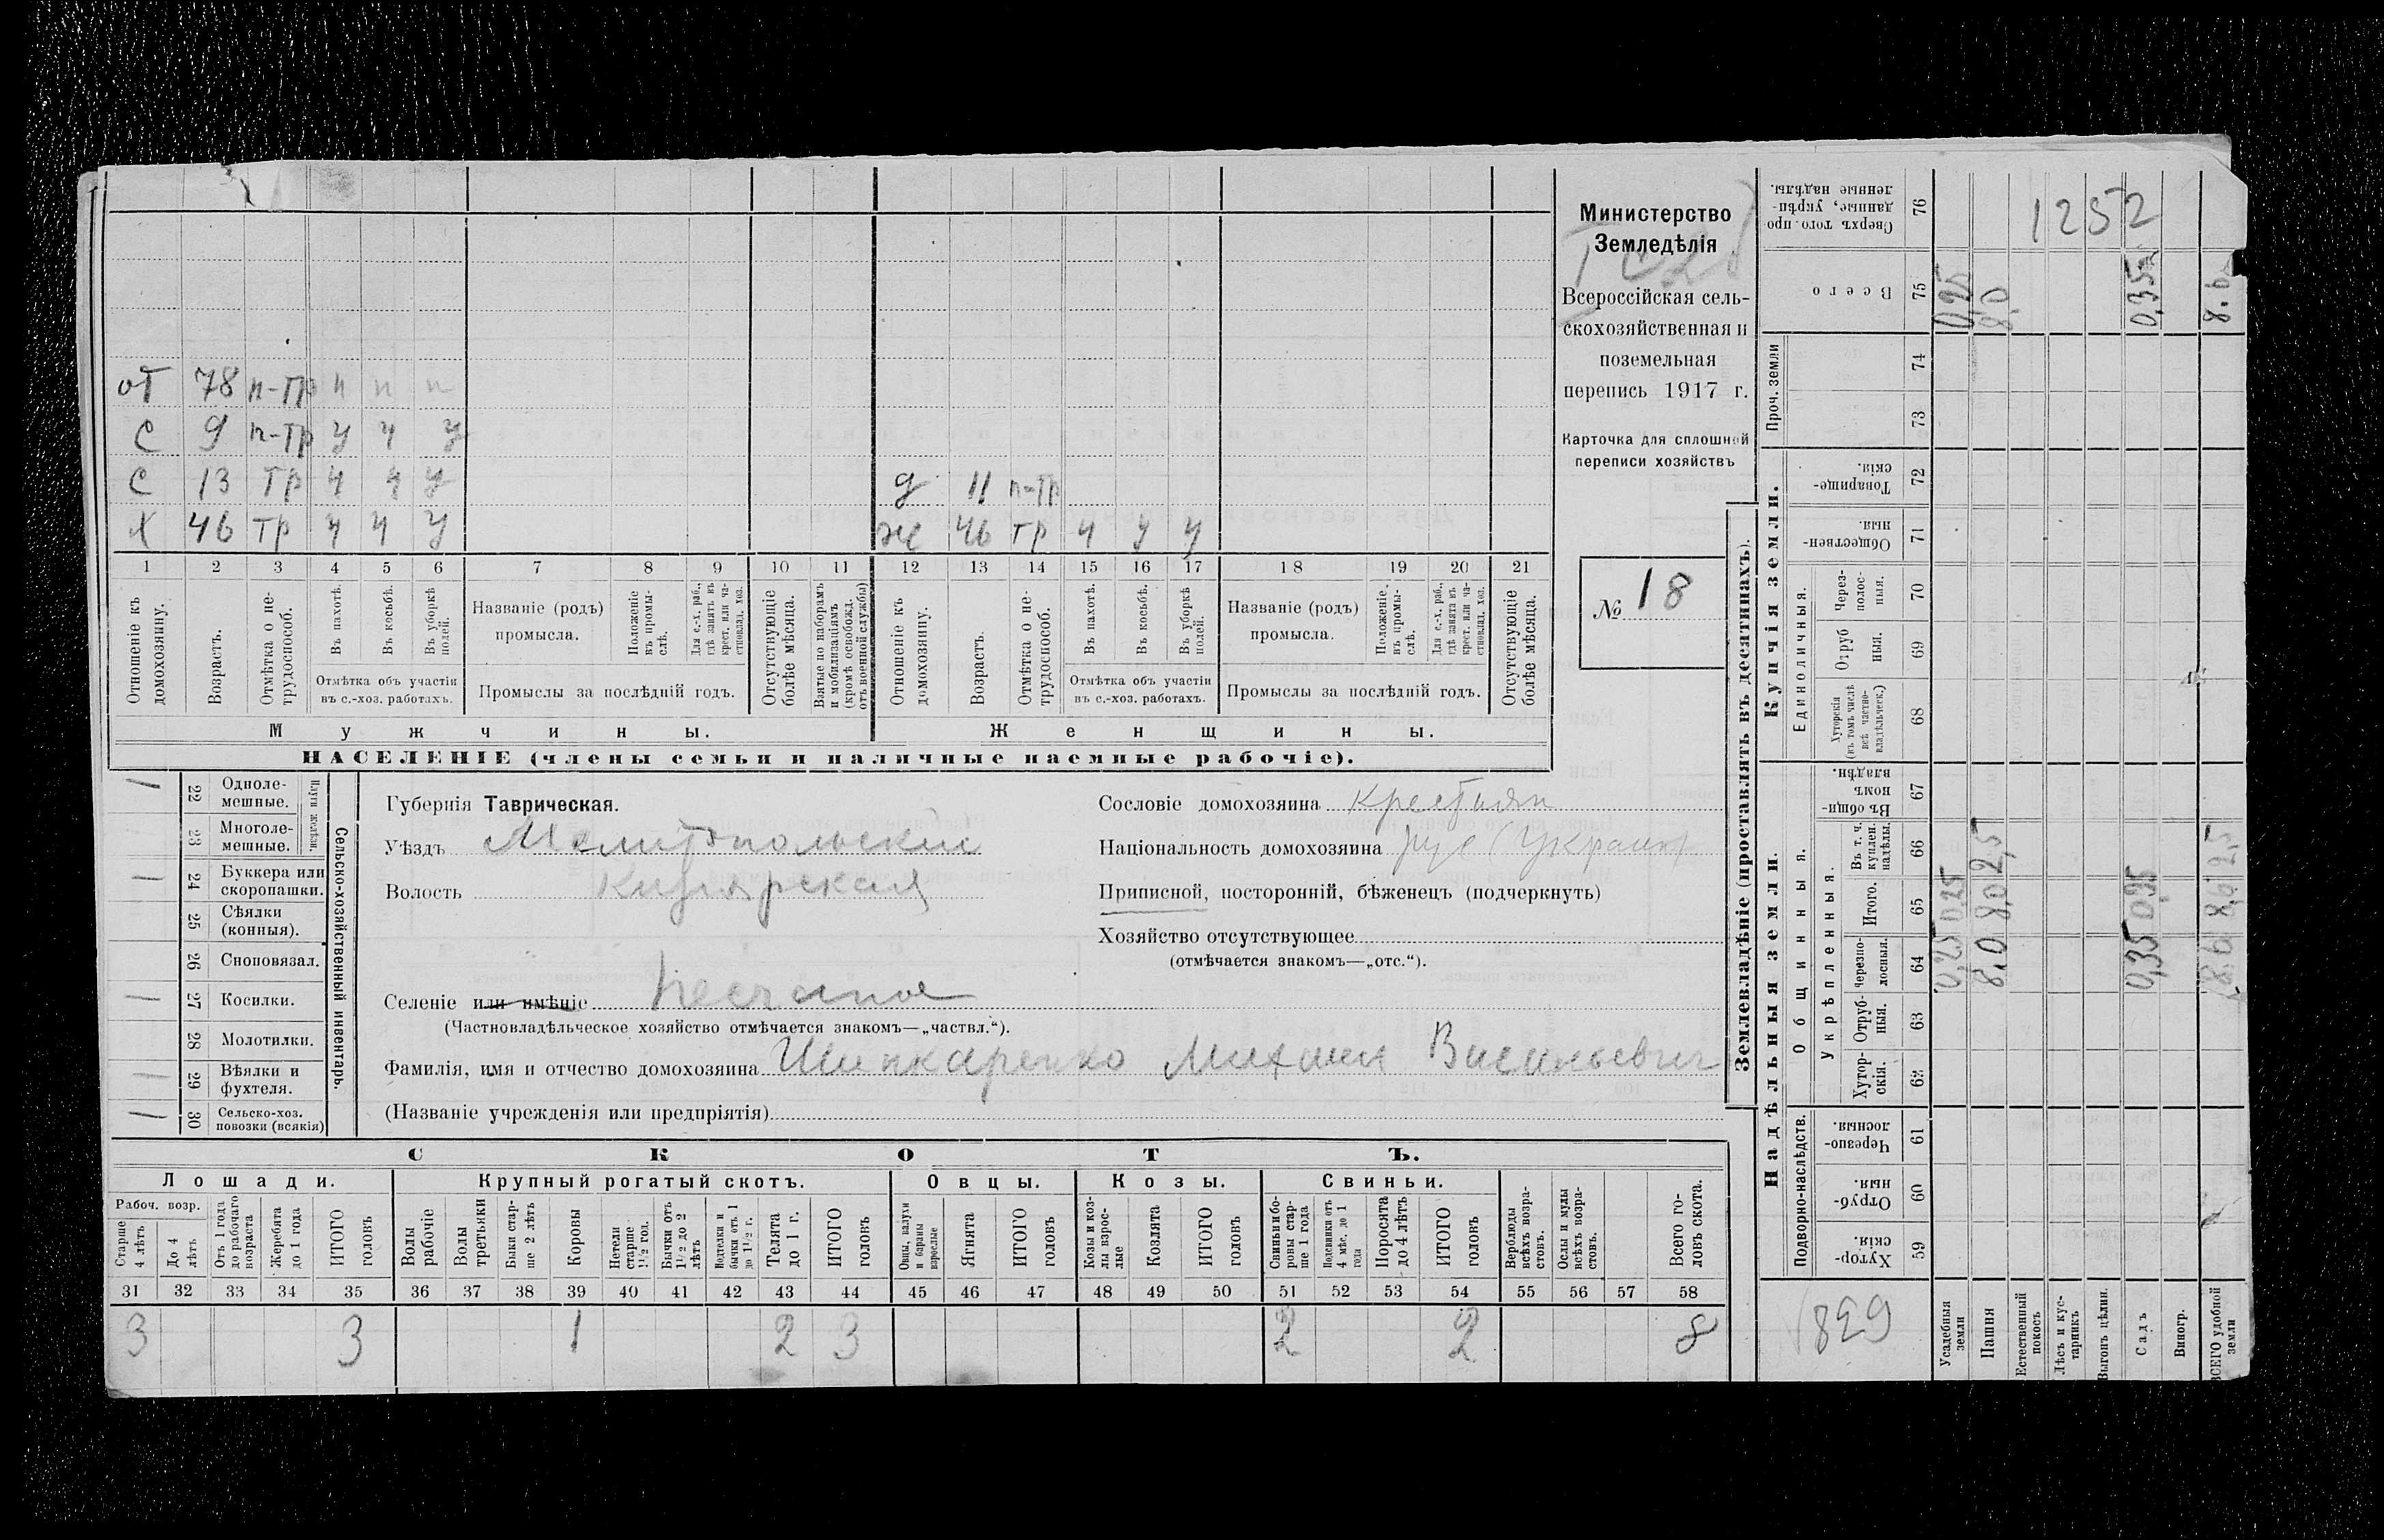 Министерство
Земледѣлія
Всероссійская сель-
скохозяйственная и
поземельная
перепись 1917 г.
Карточка для сплошной
переписи хозяйствъ
№ 18
от 78 п-тр п п п
с 9 п-тр у ч у
с 13 тр ч ч у
х 46 тр ч ч у
д 11 п-тр
же 46 тр ч у у
1 2 3 4 5 6 7 8 9 10 11 12 13 14 15 16 17 18 19 20 21
Отношеніе къ домохозяину.
Возрастъ.
Отмѣтка о не-трудоспособ.
Въ пахотѣ.
Въ косьбѣ.
Въ уборкѣ полей.
Отмѣтка объ участіи
въ с.-хоз. работахъ.
Названіе (родъ)
промысла.
Положеніе въ промы-слѣ.
Для с.-х. раб., гдѣ занятъ въ крест. или ча-стновлад. хоз.
Промыслы за послѣдній годъ.
Отсутствующіе болѣе мѣсяца.
Взятые по наборамъ и мобилизаціямъ (кромѣ освобожд. отъ военной службы)
Отношеніе къ домохозяину.
Возрастъ.
Отмѣтка о не-трудоспособ.
Въ пахотѣ.
Въ косьбѣ.
Въ уборкѣ полей.
Отмѣтка объ участіи
въ с.-хоз. работахъ.
Названіе (родъ)
промысла.
Положеніе въ промы-слѣ.
Для с.-х. раб., гдѣ занята въ крест. или ча-стновлад. хоз.
Промыслы за послѣдній годъ.
Отсутствующіе болѣе мѣсяца.
Мужчины.
Женщины.
НАСЕЛЕНІЕ (члены семьи и наличные наемные рабочіе).
Сельско-хозяйственный инвентарь.
Плуги желѣзн.
22 Одноле-мешные. 1
23 Многоле-мешные.
24 Буккера или скоропашки. 1
25 Сѣялки (конныя).
26 Сноповязал.
27 Косилки. 1
28 Молотилки.
29 Вѣялки и фухтеля. 1
30 Сельско-хоз. повозки (всякія) 1
Губернія Таврическая.
Уѣздъ Мелитопольский
Волость Кизиярская
Селеніе или имѣніе Песчаное
(Частновладѣльческое хозяйство отмѣчается знакомъ—„частвл.“).
Фамилія, имя и отчество домохозяина Шинкаренко Михаил Васильевич
(Названіе учрежденія или предпріятія)
Сословіе домохозяина крестьян
Національность домохозяина рус (Украин)
Приписной, посторонній, бѣженецъ (подчеркнуть)
Хозяйство отсутствующее
(отмѣчается знакомъ—„отс.“).
СКОТЪ.
Лошади. Крупный рогатый скотъ. Овцы. Козы. Свиньи.
Рабоч. возр.
Старше 4 лѣтъ
До 4 лѣтъ
Отъ 1 года до рабочаго возраста
Жеребята до 1 года
ИТОГО головъ
Волы рабочіе
Волы третьяки
Быки стар-ше 2 лѣтъ
Коровы
Нетели старше 1 1/2 год.
Бычки отъ 1 1/2 до 2 лѣтъ
Подтелки и бычки отъ 1 до 1 1/2 г.
Телята до 1 г.
ИТОГО головъ
Овцы, валухи и бараны взрослые
Ягнята
ИТОГО головъ
Козы и коз-лы взрос-лые
Козлята
ИТОГО головъ
Свиньи и бо-ровы стар-ше 1 года
Подсвинки отъ 4 мѣс. до 1 года
Поросята до 4 лѣтъ
ИТОГО головъ
Верблюды всѣхъ возра-стовъ.
Ослы и мулы всѣхъ возра-стовъ.
Всего го-ловъ скота.
31 32 33 34 35 36 37 38 39 40 41 42 43 44 45 46 47 48 49 50 51 52 53 54 55 56 57 58
3 3 1 2 3 2 2 8
Землевладѣніе (проставлять въ десятинахъ).
Надѣльныя земли.
Купчія земли.
Подворно-наслѣдств.
Общинныя.
Укрѣпленныя.
Единоличныя.
Проч. земли
Хутор-скія. 59
Отруб-ныя. 60
Черезпо-лосныя. 61
Хутор-скія. 62
Отруб-ныя. 63
Черезпо-лосныя. 64
Итого. 65
Въ т. ч. куплен. надѣлы. 66
Въ общи-номъ владѣн. 67
Хуторскія (въ томъ числѣ всѣ частно-владѣльческ.) 68
Отруб ныя. 69
Через-полос-ныя. 70
Обществен-ныя. 71
Товарище-скія. 72
73
74
Всего 75
Сверхъ того про-данные, укрѣп-ленные надѣлы. 76
1252
1829
Усадебныя земли 0,25 0,25 0,25
Пашня 8,0 8,0 2,5 8,0
Естественный покосъ
Лѣсъ и кус-тарникъ
Выгонъ цѣлин.
Садъ 0,35 0,35 0,35
Виногр.
ВСЕГО удобной земли 8,6 8,6 2,5 8,6